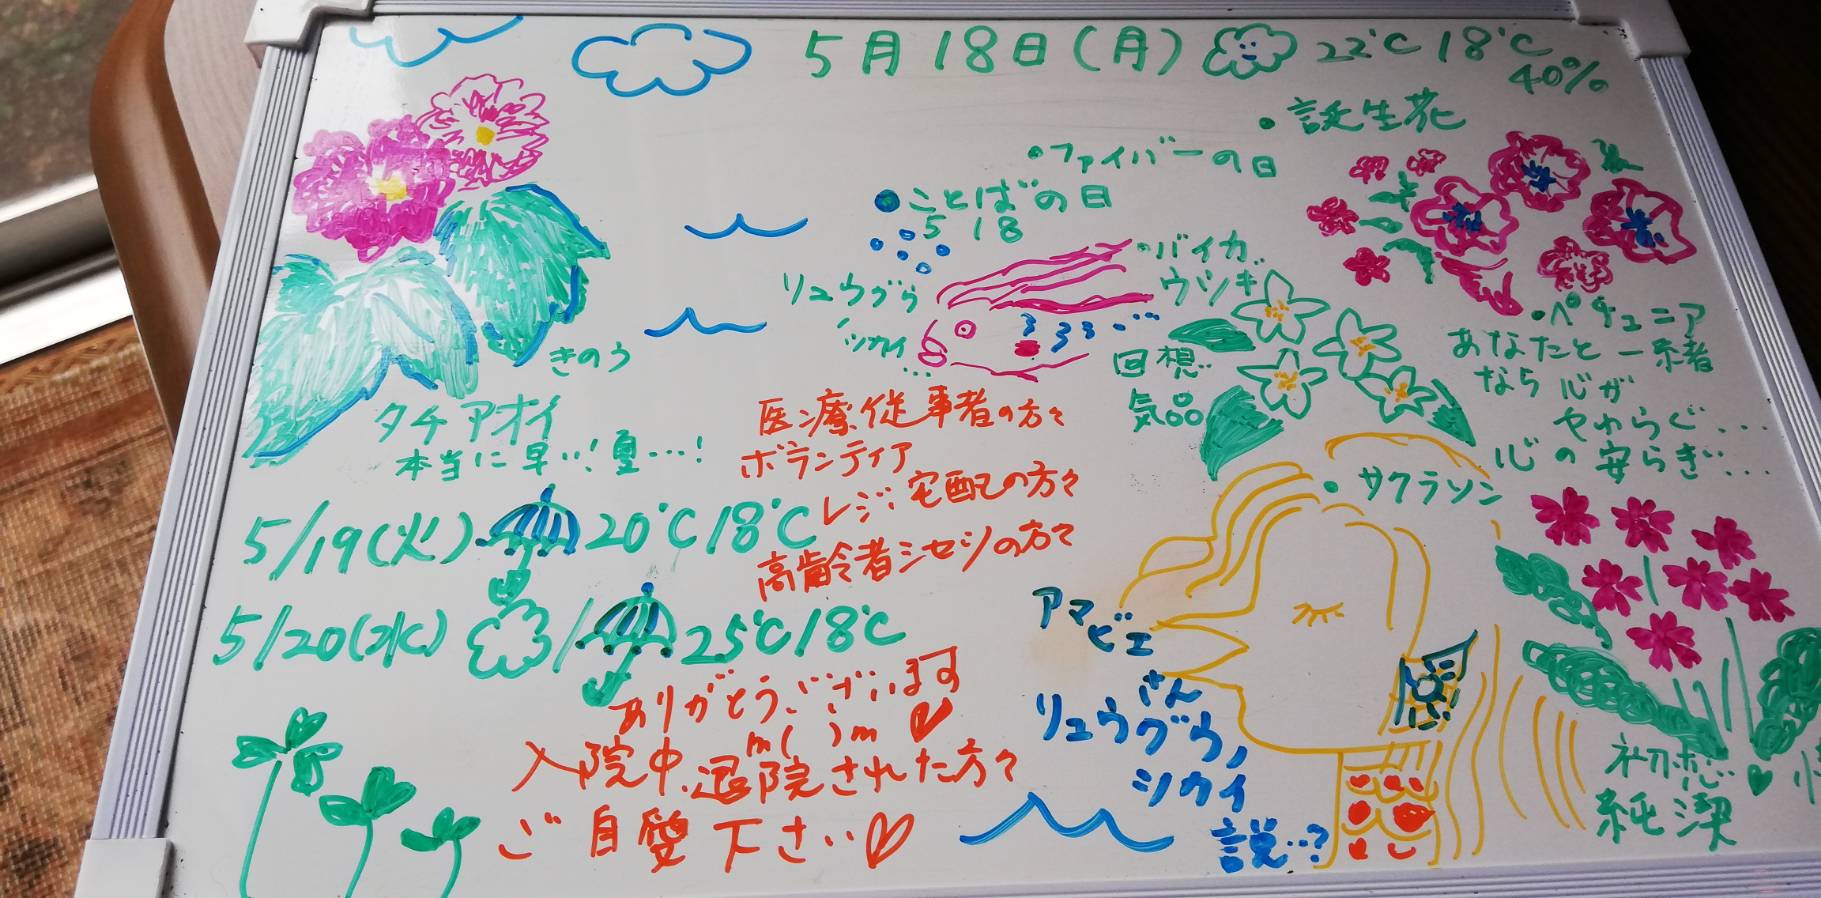 5月18日(月) 22℃ 18℃
40%
・誕生花
・ファイバーの日
●ことばの日
5 18
リュウグウ
ノツカイ
...
・バイカ
ウツギ
回想..
気品
・ペチュニア
あなたと一緒
なら心が
やわらぐ...
心の安らぎ...
きのう
タチアオイ
本当に早い!夏...!
医療従事者の方々
ボランティア
レジ 宅配の方々
高齢者シセツの方々
・サクラソウ
5/19(火) 20℃ 18℃
5/20(水) / 25℃ 18℃
アマ
ビエ
さん
リュウグウノ
ツカイ
説..?
ありがとうございます
m( )m
入院中、退院された方々
ご自愛下さい
初恋
純潔